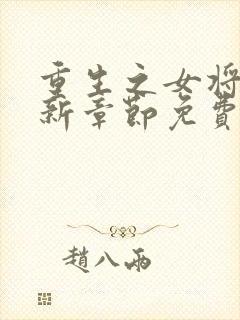 重生之女将
新章節免費
趙八兩